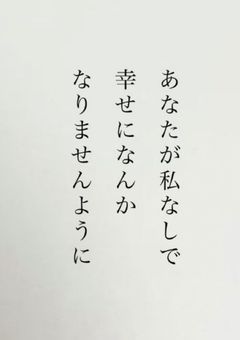 あなたが私なしで
幸せになんか
なりませんように